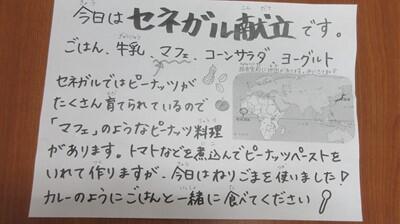 今日はセネガル献立です。
ごはん、牛乳、マフェ、コーンサラダ ヨーグルト
セネガルではピーナッツが
たくさん育てられているので
「マフェ」のようなピーナッツ料理
があります。トマトなどを煮込んでピーナッツペーストを
いれて作りますが、今日はねりごまを使いました!
カレーのようにごはんと一緒に食べてください